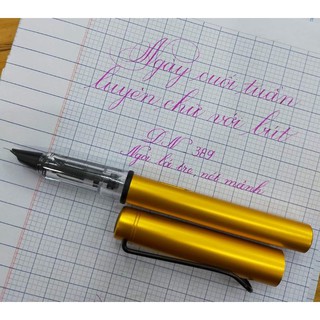 Ngày cuối tuần
luyện chữ với bút
DM 389
Ngòi lá tre, nét mảnh